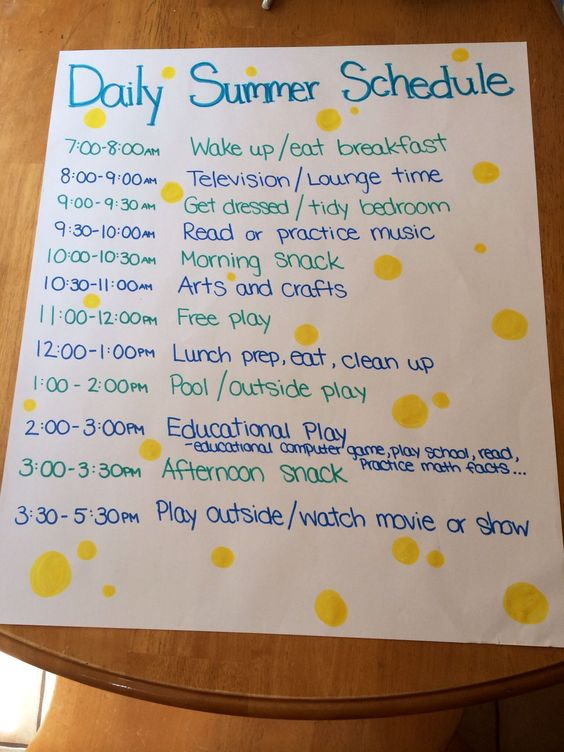 Daily Summer Schedule
7:00-8:00AM Wake up/eat breakfast
8:00-9:00AM Television/Lounge time
9:00-9:30AM Get dressed/tidy bedroom
9:30-10:00AM Read or practice music
10:00-10:30AM Morning snack
10:30-11:00AM Arts and crafts
11:00-12:00PM Free play
12:00-1:00PM Lunch prep, eat, clean up
1:00-2:00PM Pool/outside play
2:00-3:00PM Educational Play
-educational computer game, play school, read,
Practice math facts...
3:00-3:30PM Afternoon snack
3:30-5:30PM Play outside/watch movie or show